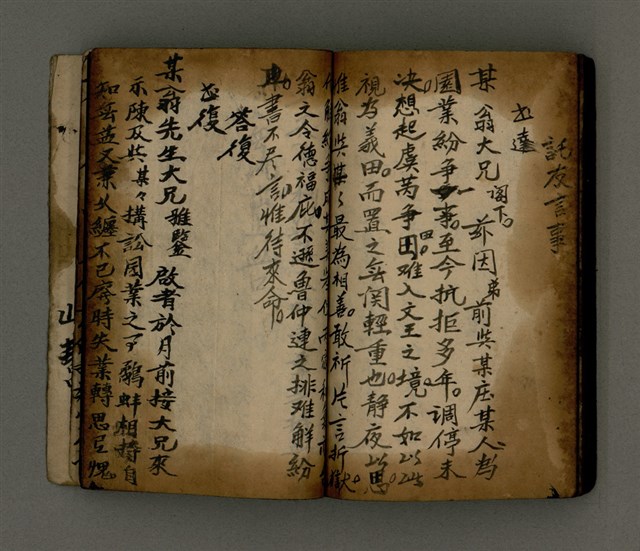 託友言事
書達
某翁大兄阁下。茲因弟前與某庄某人為
園業紛爭一事。至今抗拒多年。調停未
决。想起虞芮爭田。难入文王之境。不如以此
視為義田。而置之無関輕重也。静夜以思
惟翁與某々最為相善。敢祈片言折獄。
翁之令德福庇。不遜魯仲連之排难解紛
也。書不尽言。惟待來命。
答復
書復
某翁先生大兄雅鑒 啟者於月前接大兄來
示陳及與某々搆訟園業之事鷸蚌相持自
知無益又業如纏不已廢時失業轉思足愧。